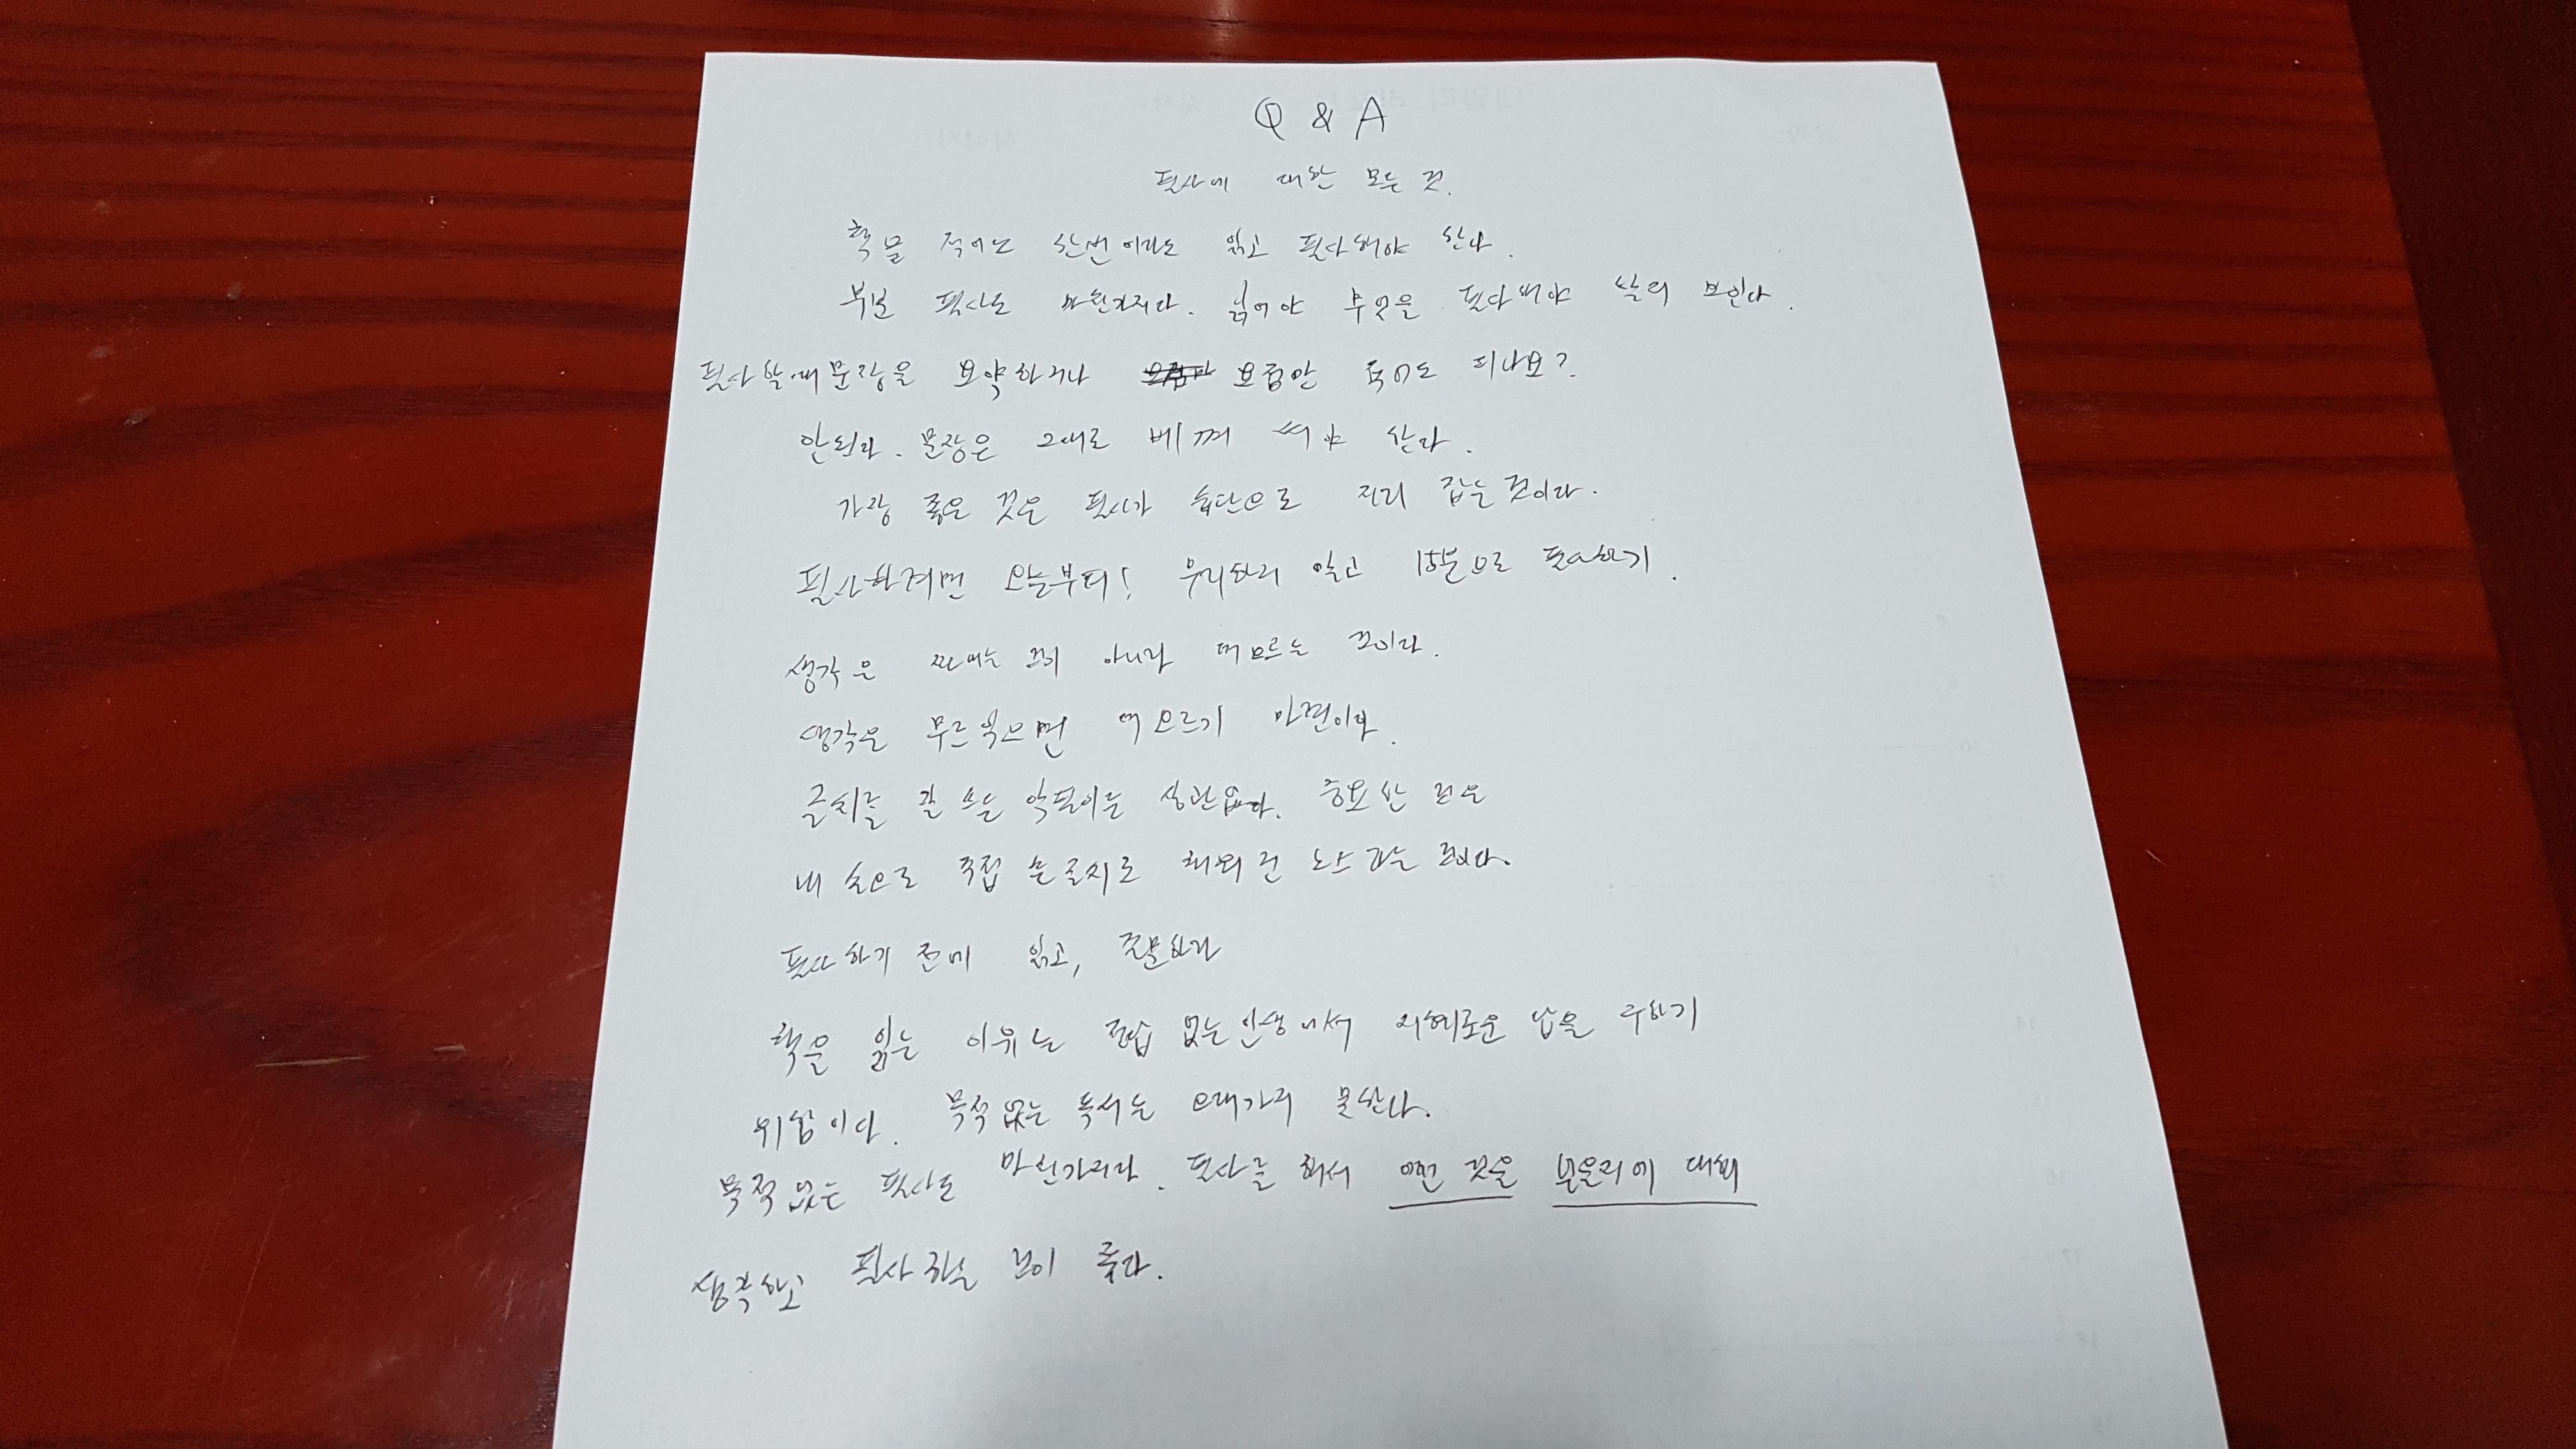 Q & A
필사에 대한 모든 것.
책을 적어도 한번이라도 읽고 필사해야 한다.
부분 필사도 마찬가지다. 읽어야 무엇을 필사해야 할지 보인다.
필사할때 문장을 요약하거나 요점만 적어도 되나요?
안된다. 문장은 그대로 베껴 써야 한다.
가장 좋은 것은 필사가 습관으로 자리 잡는 것이다.
필사하려면 오늘부터! 무리하지 않고 15분으로 필사하기.
생각은 짜내는 것이 아니라 떠오르는 것이다.
생각은 무르익으면 떠오르기 마련이다.
글씨를 잘 쓰든 악필이든 상관없다. 중요한 것은
내 손으로 직접 손글씨로 채워진 노트 라는 것이다.
필사하기 전에 읽고, 질문하라
책을 읽는 이유는 정답 없는 인생에서 지혜로운 답을 구하기
위함이다. 목적 없는 독서는 오래가지 못한다.
목적 없는 필사도 마찬가지다. 필사를 해서 어떤 것을 얻을지에 대해
생각하고 필사하는 것이 좋다.